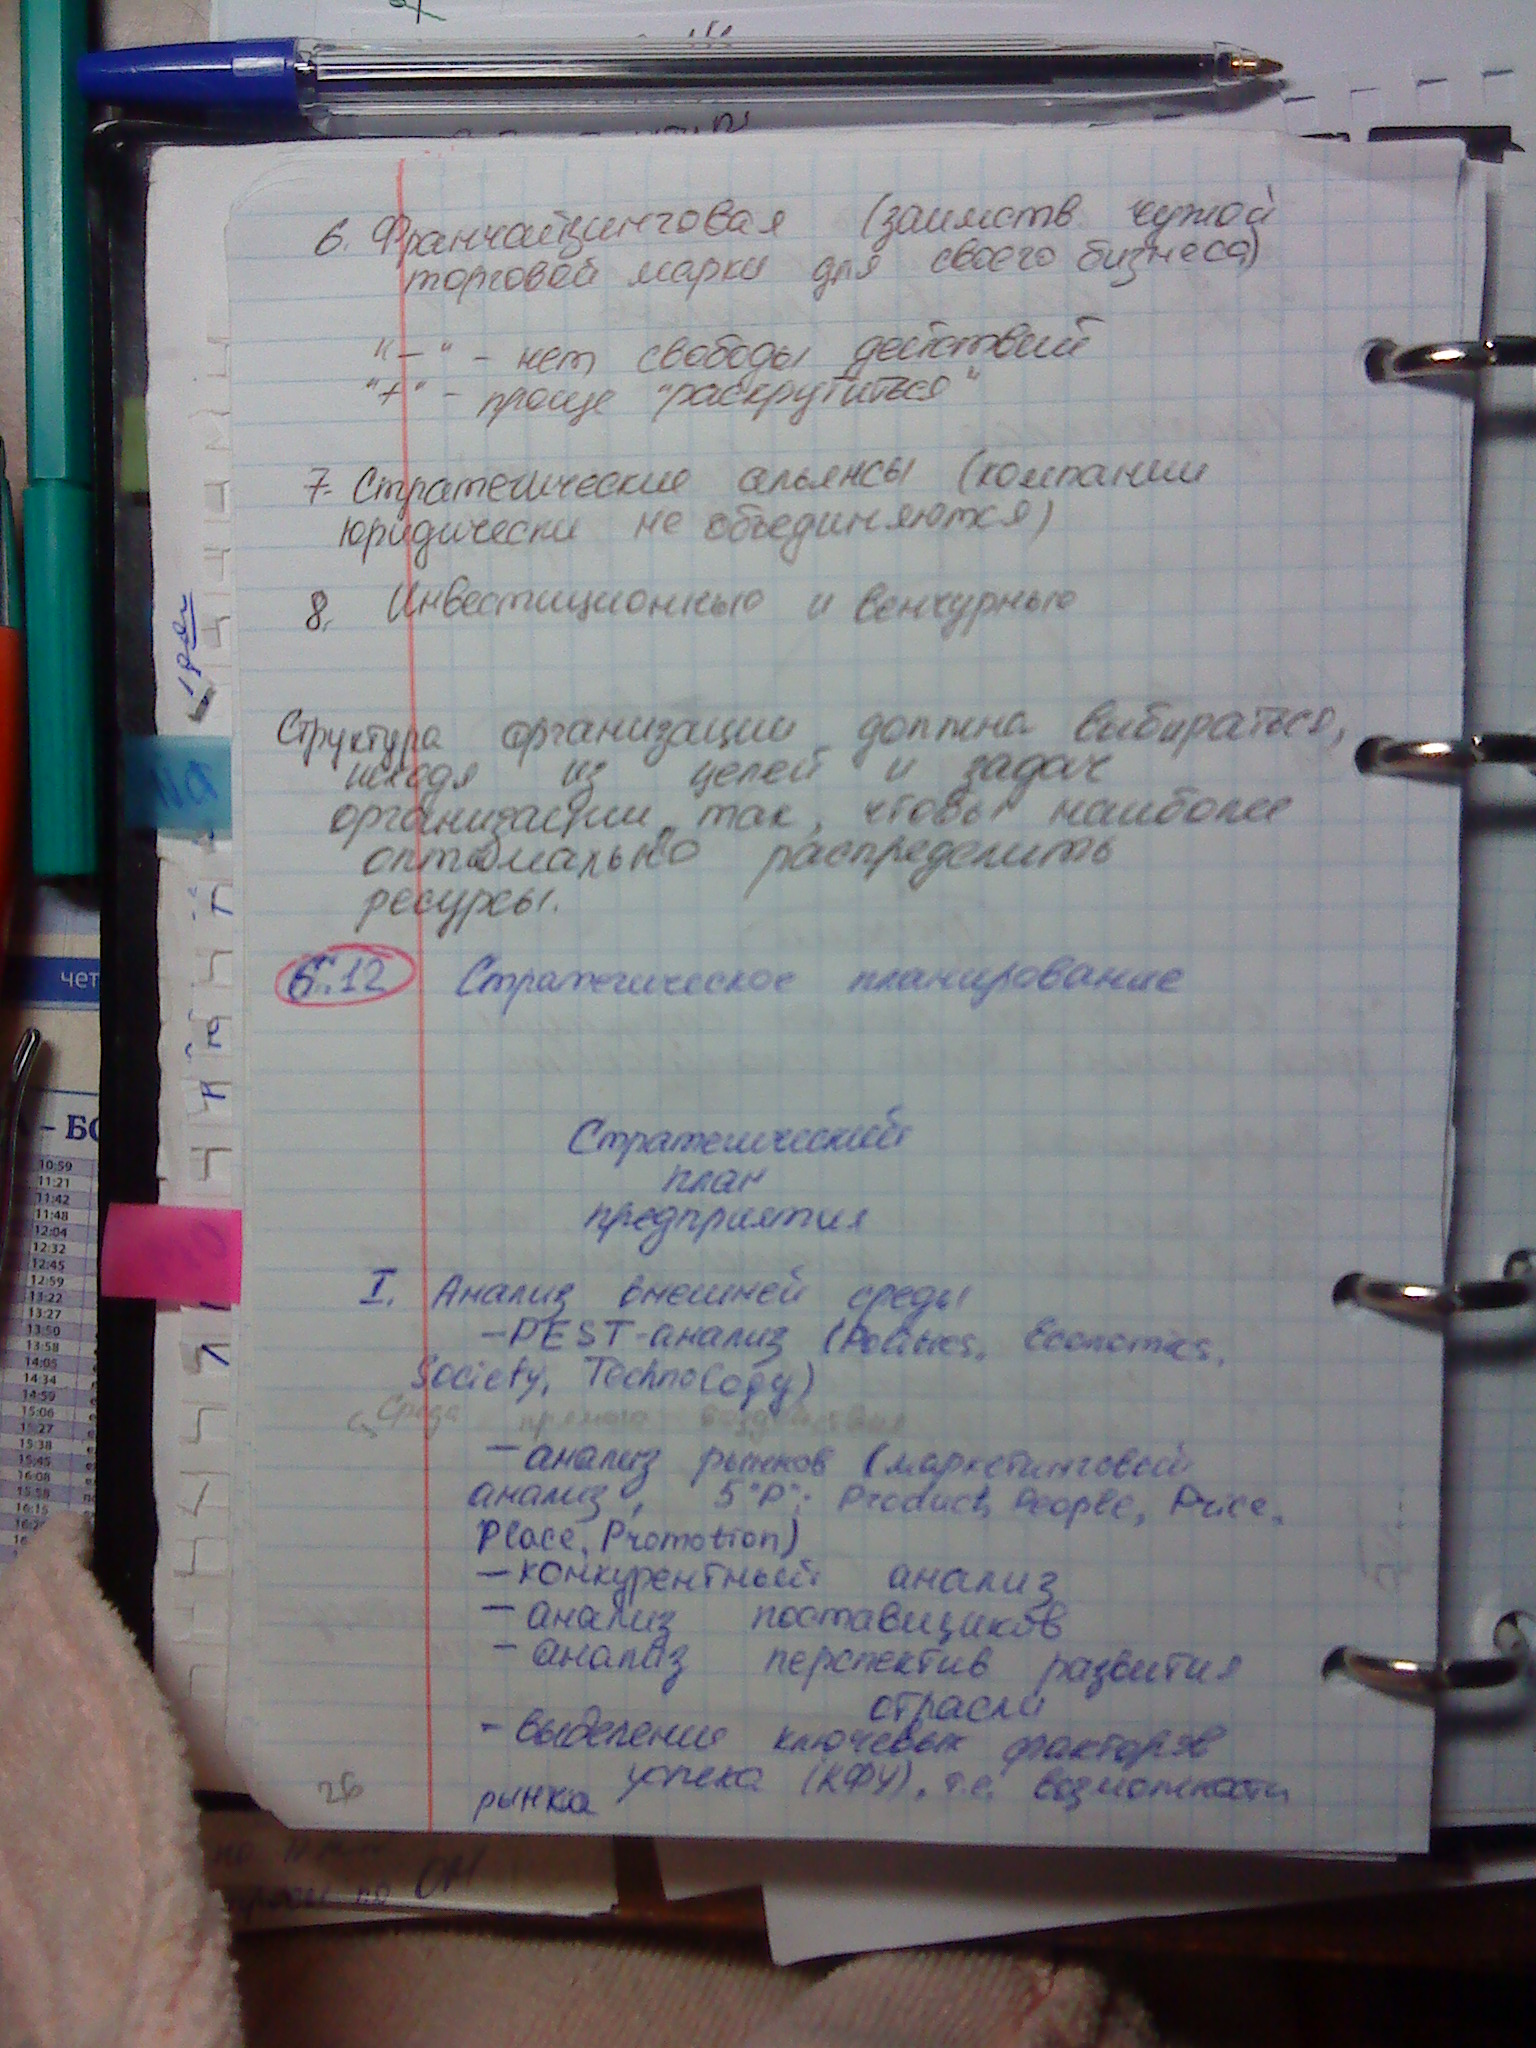 6. Франчайзинговая (заимств. чужой
торговой марки для своего бизнеса)
"–" – нет свободы действий
"+" – проще "раскрутиться"
7. Стратегические альянсы (компании
юридически не объединяются)
8. Инвестиционные и венчурные
Структура организации должна выбираться,
исходя из целей и задач
организации так, чтобы наиболее
оптимально распределить
ресурсы.
6.12 Стратегическое планирование
Стратегический
план
предприятия
I. Анализ внешней среды
– PEST-анализ (Politics, Economics,
Society, Technology)
Среда прямого воздействия
– анализ рынков (маркетинговый
анализ, 5"P": Product, People, Price,
Place, Promotion)
– конкурентный анализ
– анализ поставщиков
– анализ перспектив развития
отрасли
– выделение ключевых факторов
успеха (КФУ), т.е. возможности
рынка
26
чет
– БО
10:59
11:21
11:42
11:48
12:04
12:32
12:45
12:59
13:22
13:27
13:50
13:58
14:05
14:34
14:59
15:06
15:27
15:38
15:45
16:08
15:58
16:15
по ОМ